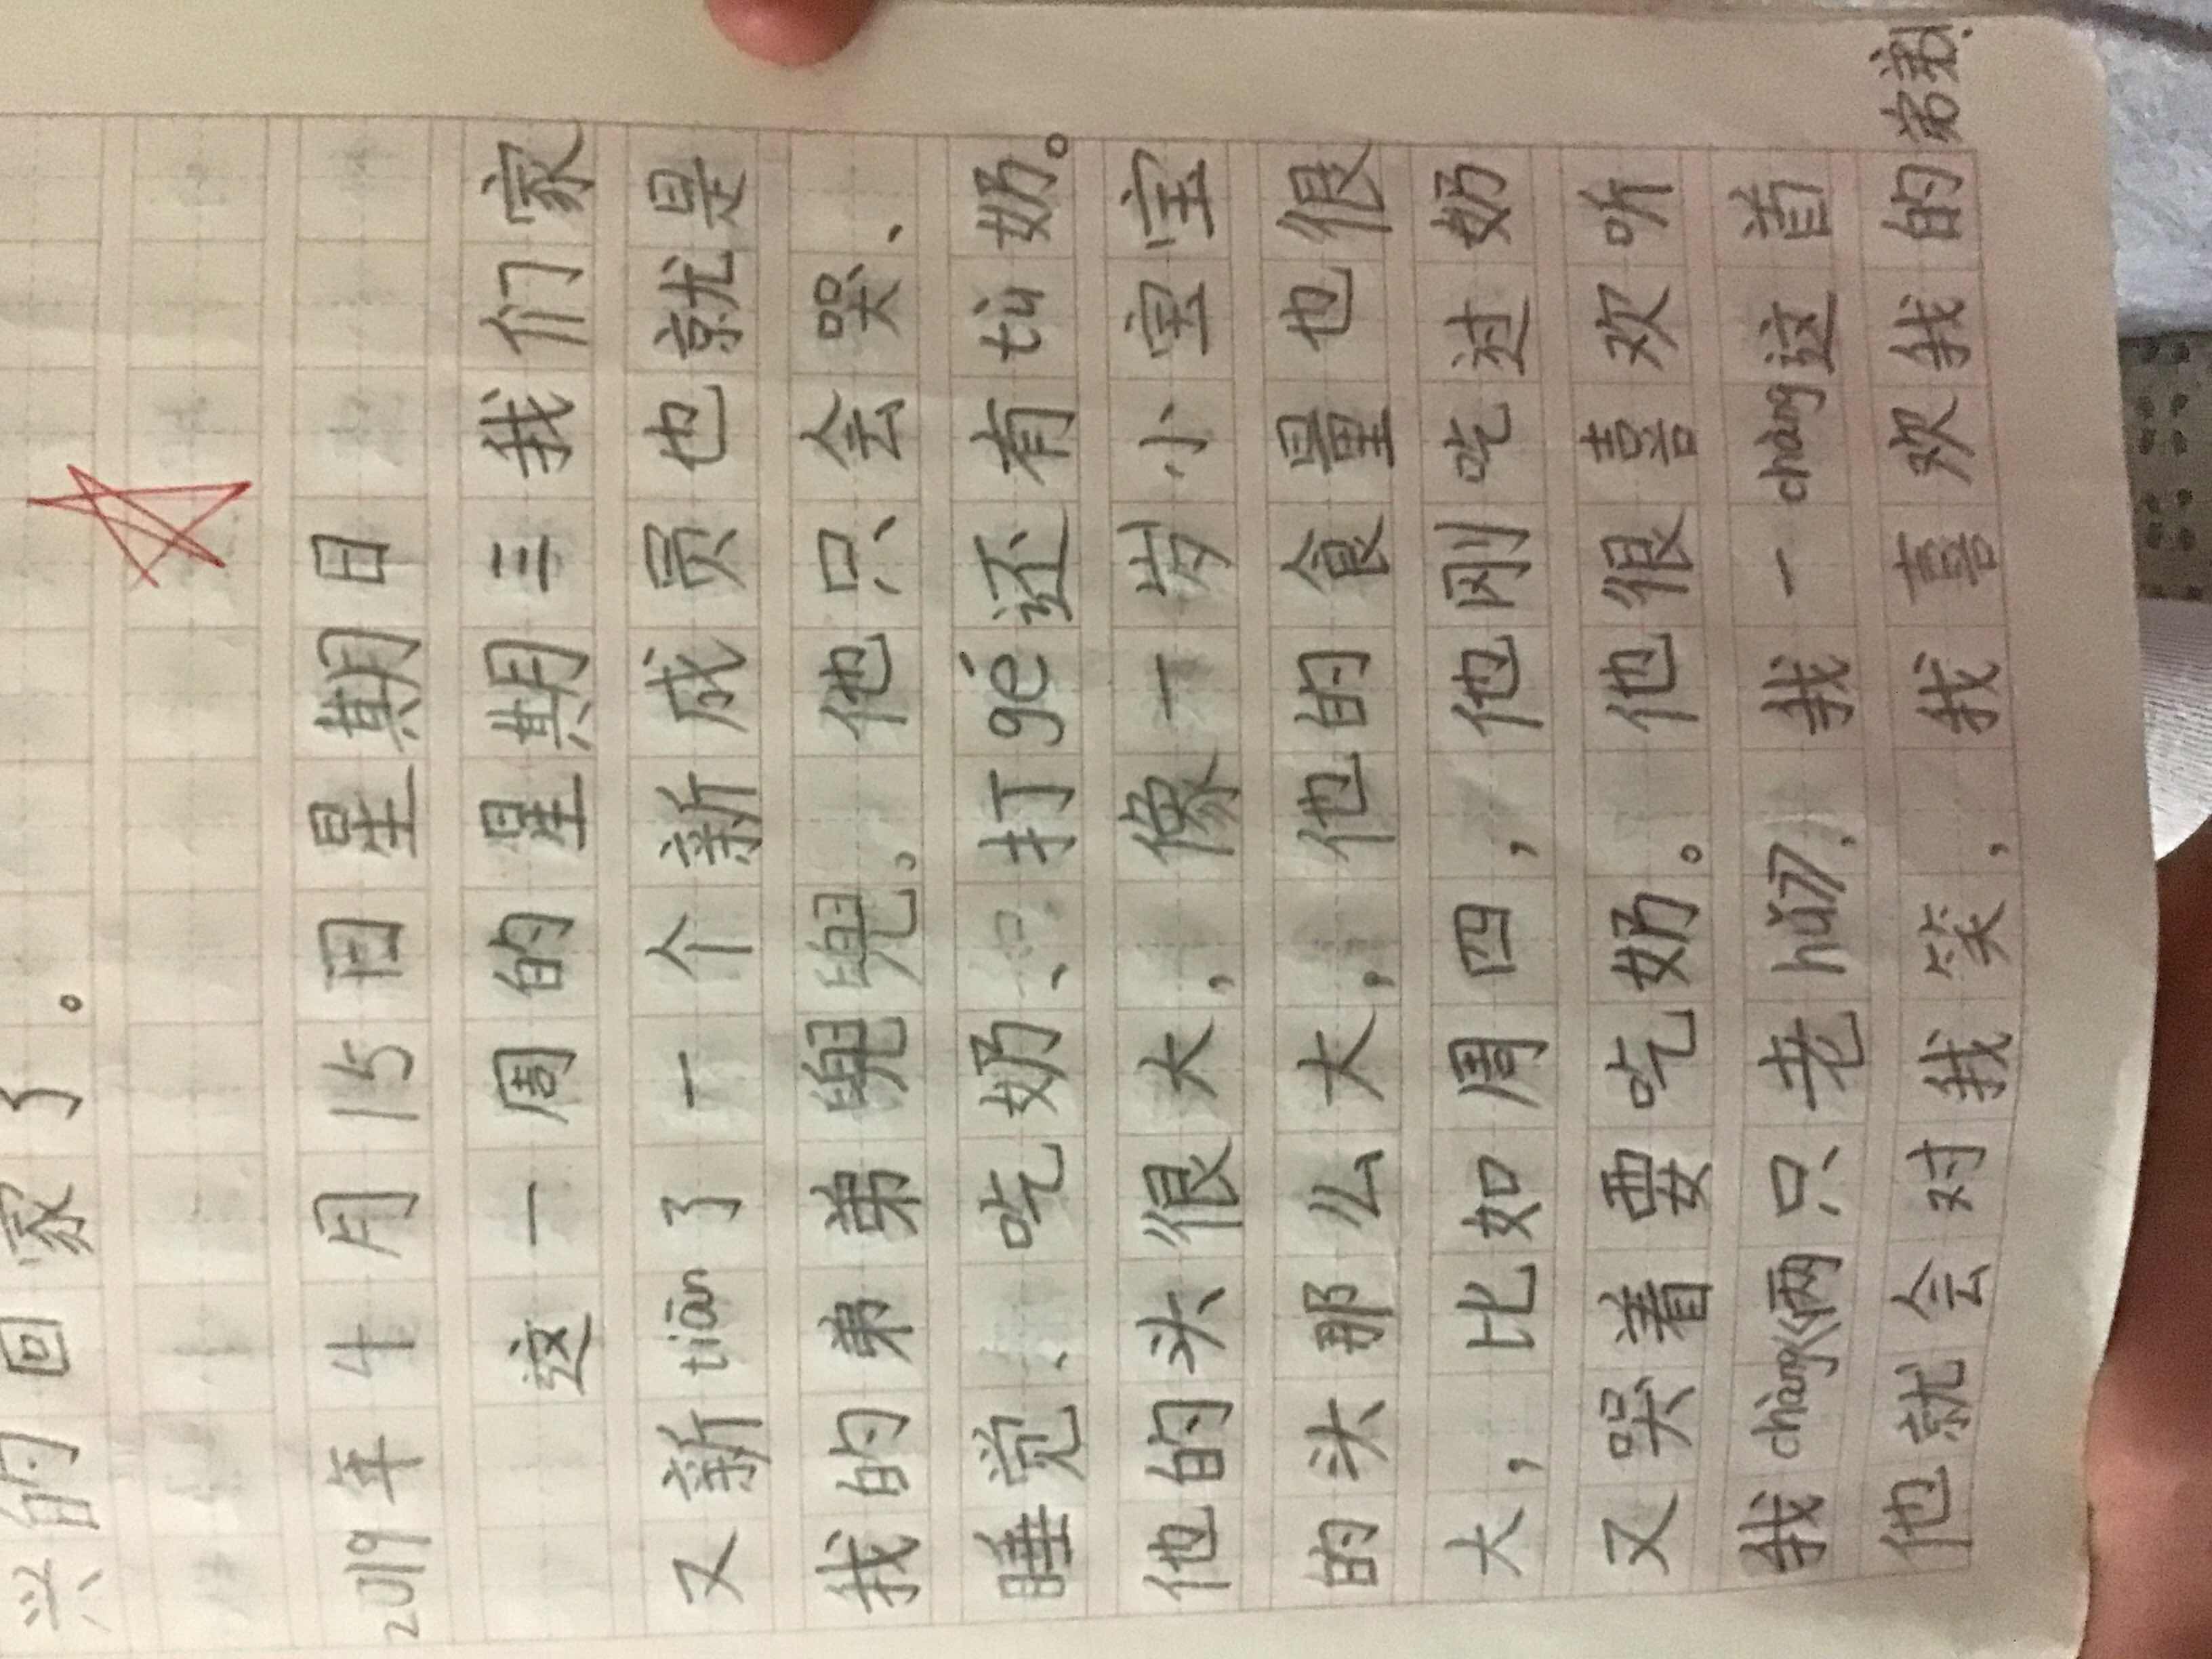 兴的回家了。
2019年4月15日星期日
这一周的星期三我们家
又新tiān了一个新成员也就是
我的弟弟兜兜。他只会哭、
睡觉、吃奶、打gé还有tù奶。
他的头很大，像一岁小宝宝
的头那么大，他的食量也很
大，比如周四，他刚吃过奶
又哭着要吃奶。他很喜欢听
我chàng《两只老hǔ》，我一chàng这首
他就会对我笑，我喜欢我的弟弟！